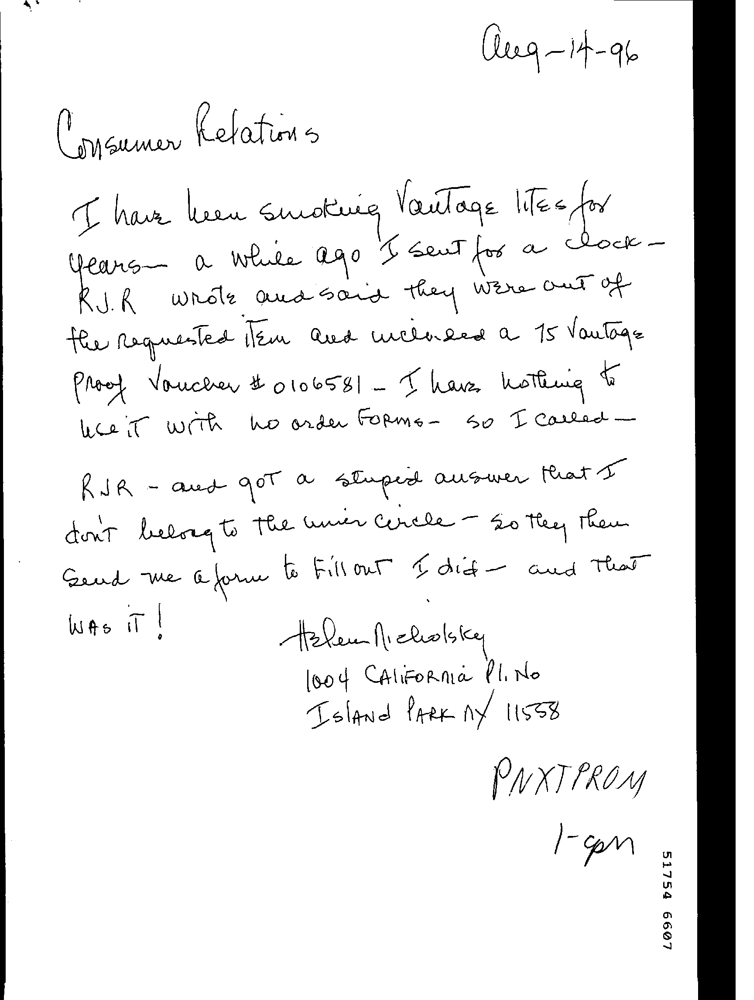 Aug-14-96
Consumer Relations
I have been smoking Vantage lites for
years— a while ago I sent for a clock—
R.J.R wrote and said they were out of
the requested item and included a 75 Vantage
Proof Voucher # 0106581 - I have nothing to
use it with no order forms- so I called—
RJR - and got a stupid answer that I
don't belong to the inner circle - so they then
send me a form to fill out I did - and that
was it!
Helen Nicholsky
1004 California Pl. No
Island Park NY 11558
PNXTPROM
51754 6607